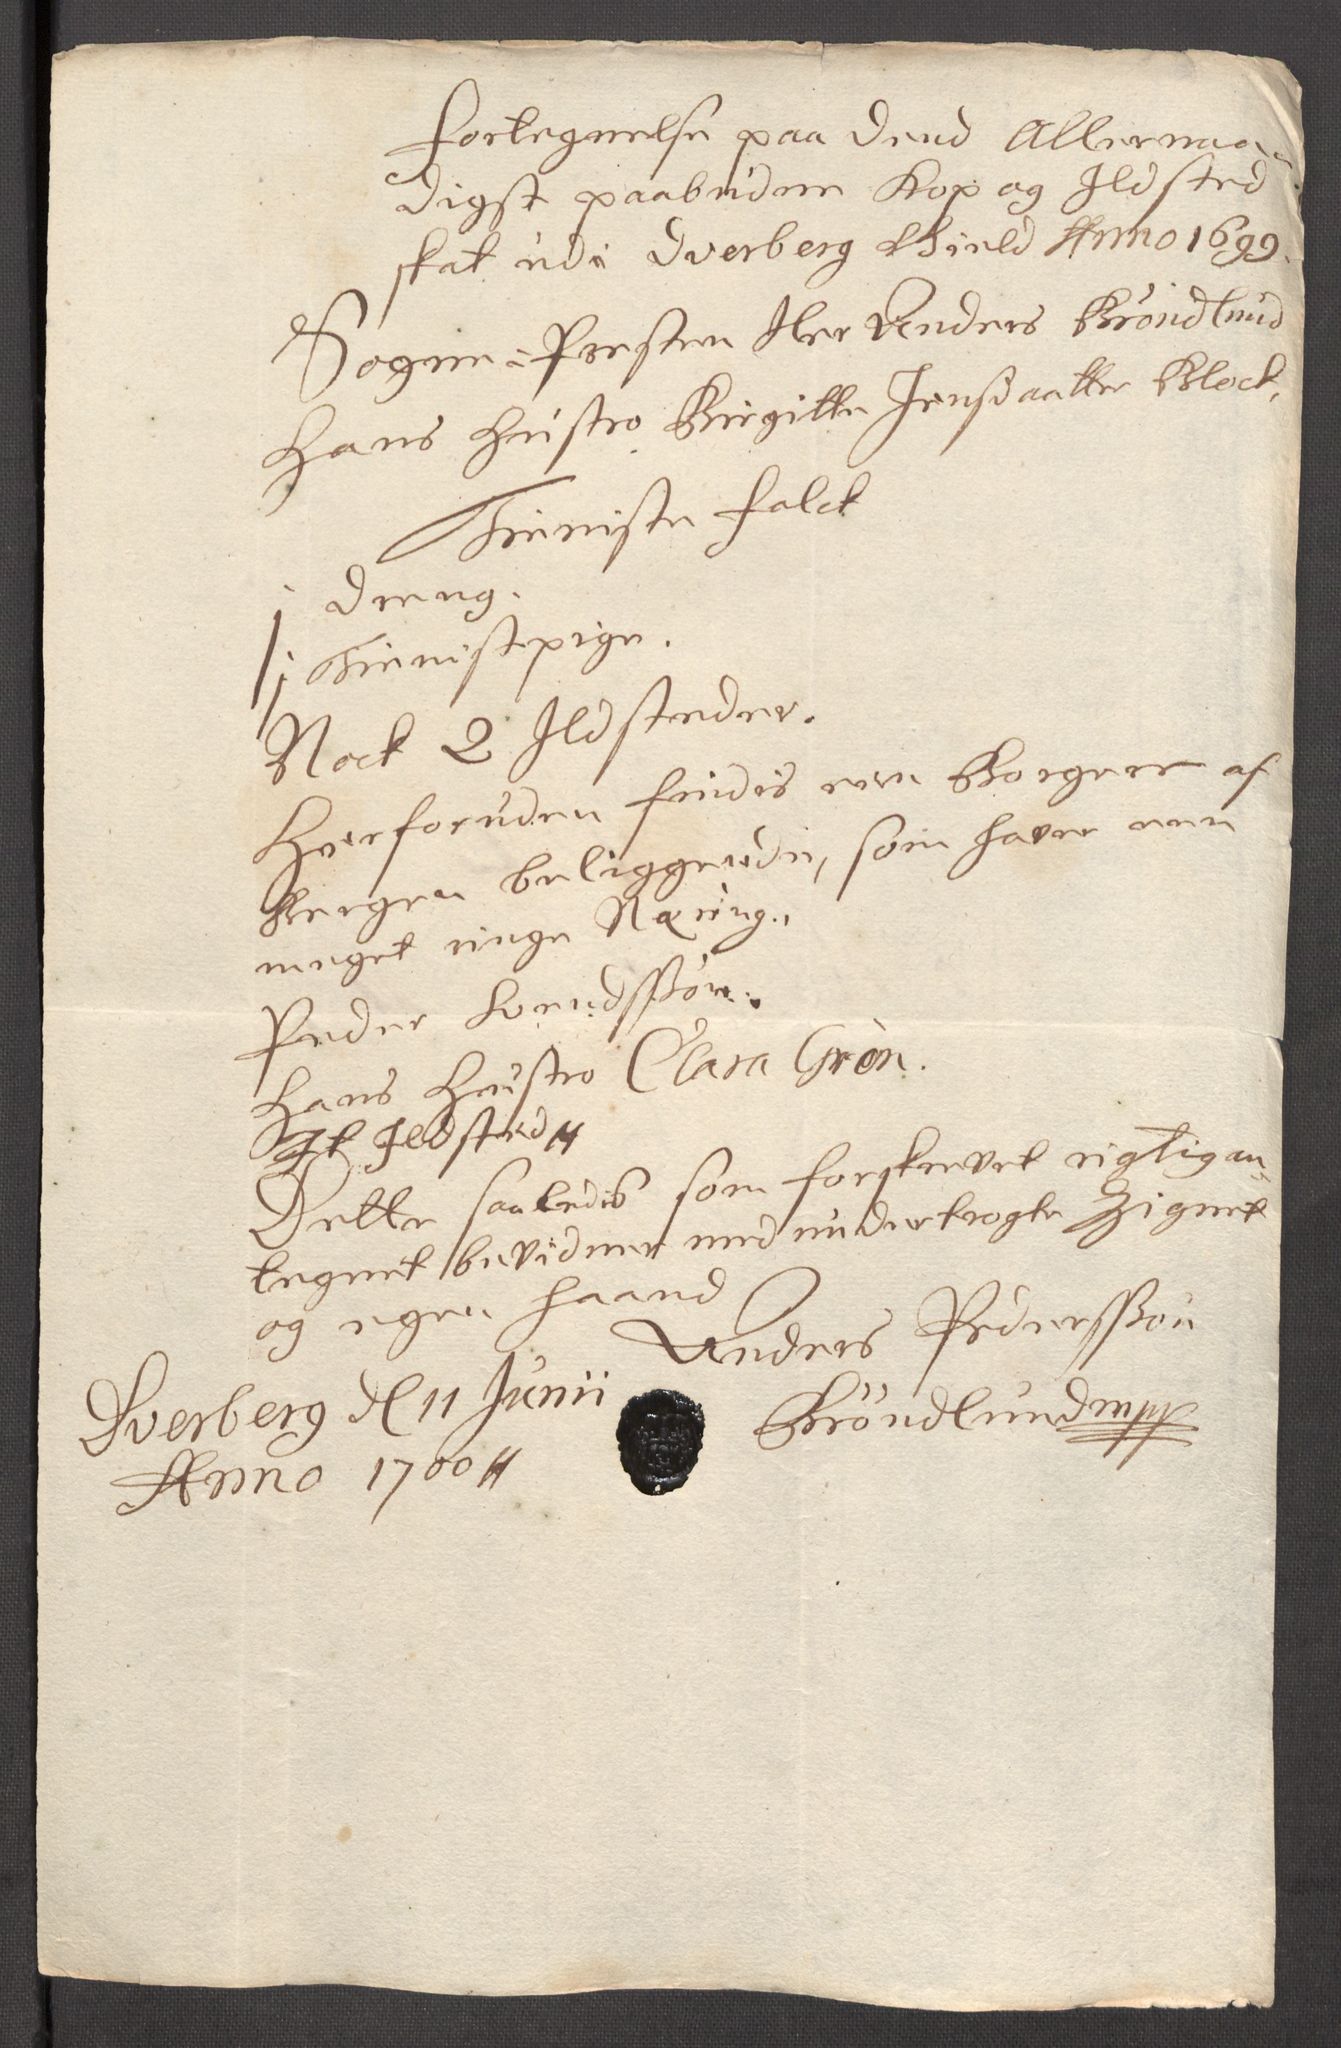 Fortegnelse paa dend Allernaa-
digst paabudne Kop og Ildsted
skat udi Dverberg Gield Anno 1699.
Sogne-Presten Her Anders Bröndlund
Hans Hustro Birgitte Jensdaatter Block,
Tieniste Falck
j Dreng.
j Tienistepige.
Nock 2 Ildsteder.
Hverforuden findis een Borger af
Bergen beliggende, som haver een
meget ringe Næring.
Peder Svendssön.
Hans Hustro Clara Grön.
It Ildsted
Dette saaledis som forskrevet rigtig an-
tegnet bevidner med undertrogte Zignet
og egen haand
Anders Pederssön
Dverberg dl 11 Junii
Bröndlund mpp
Anno 1700